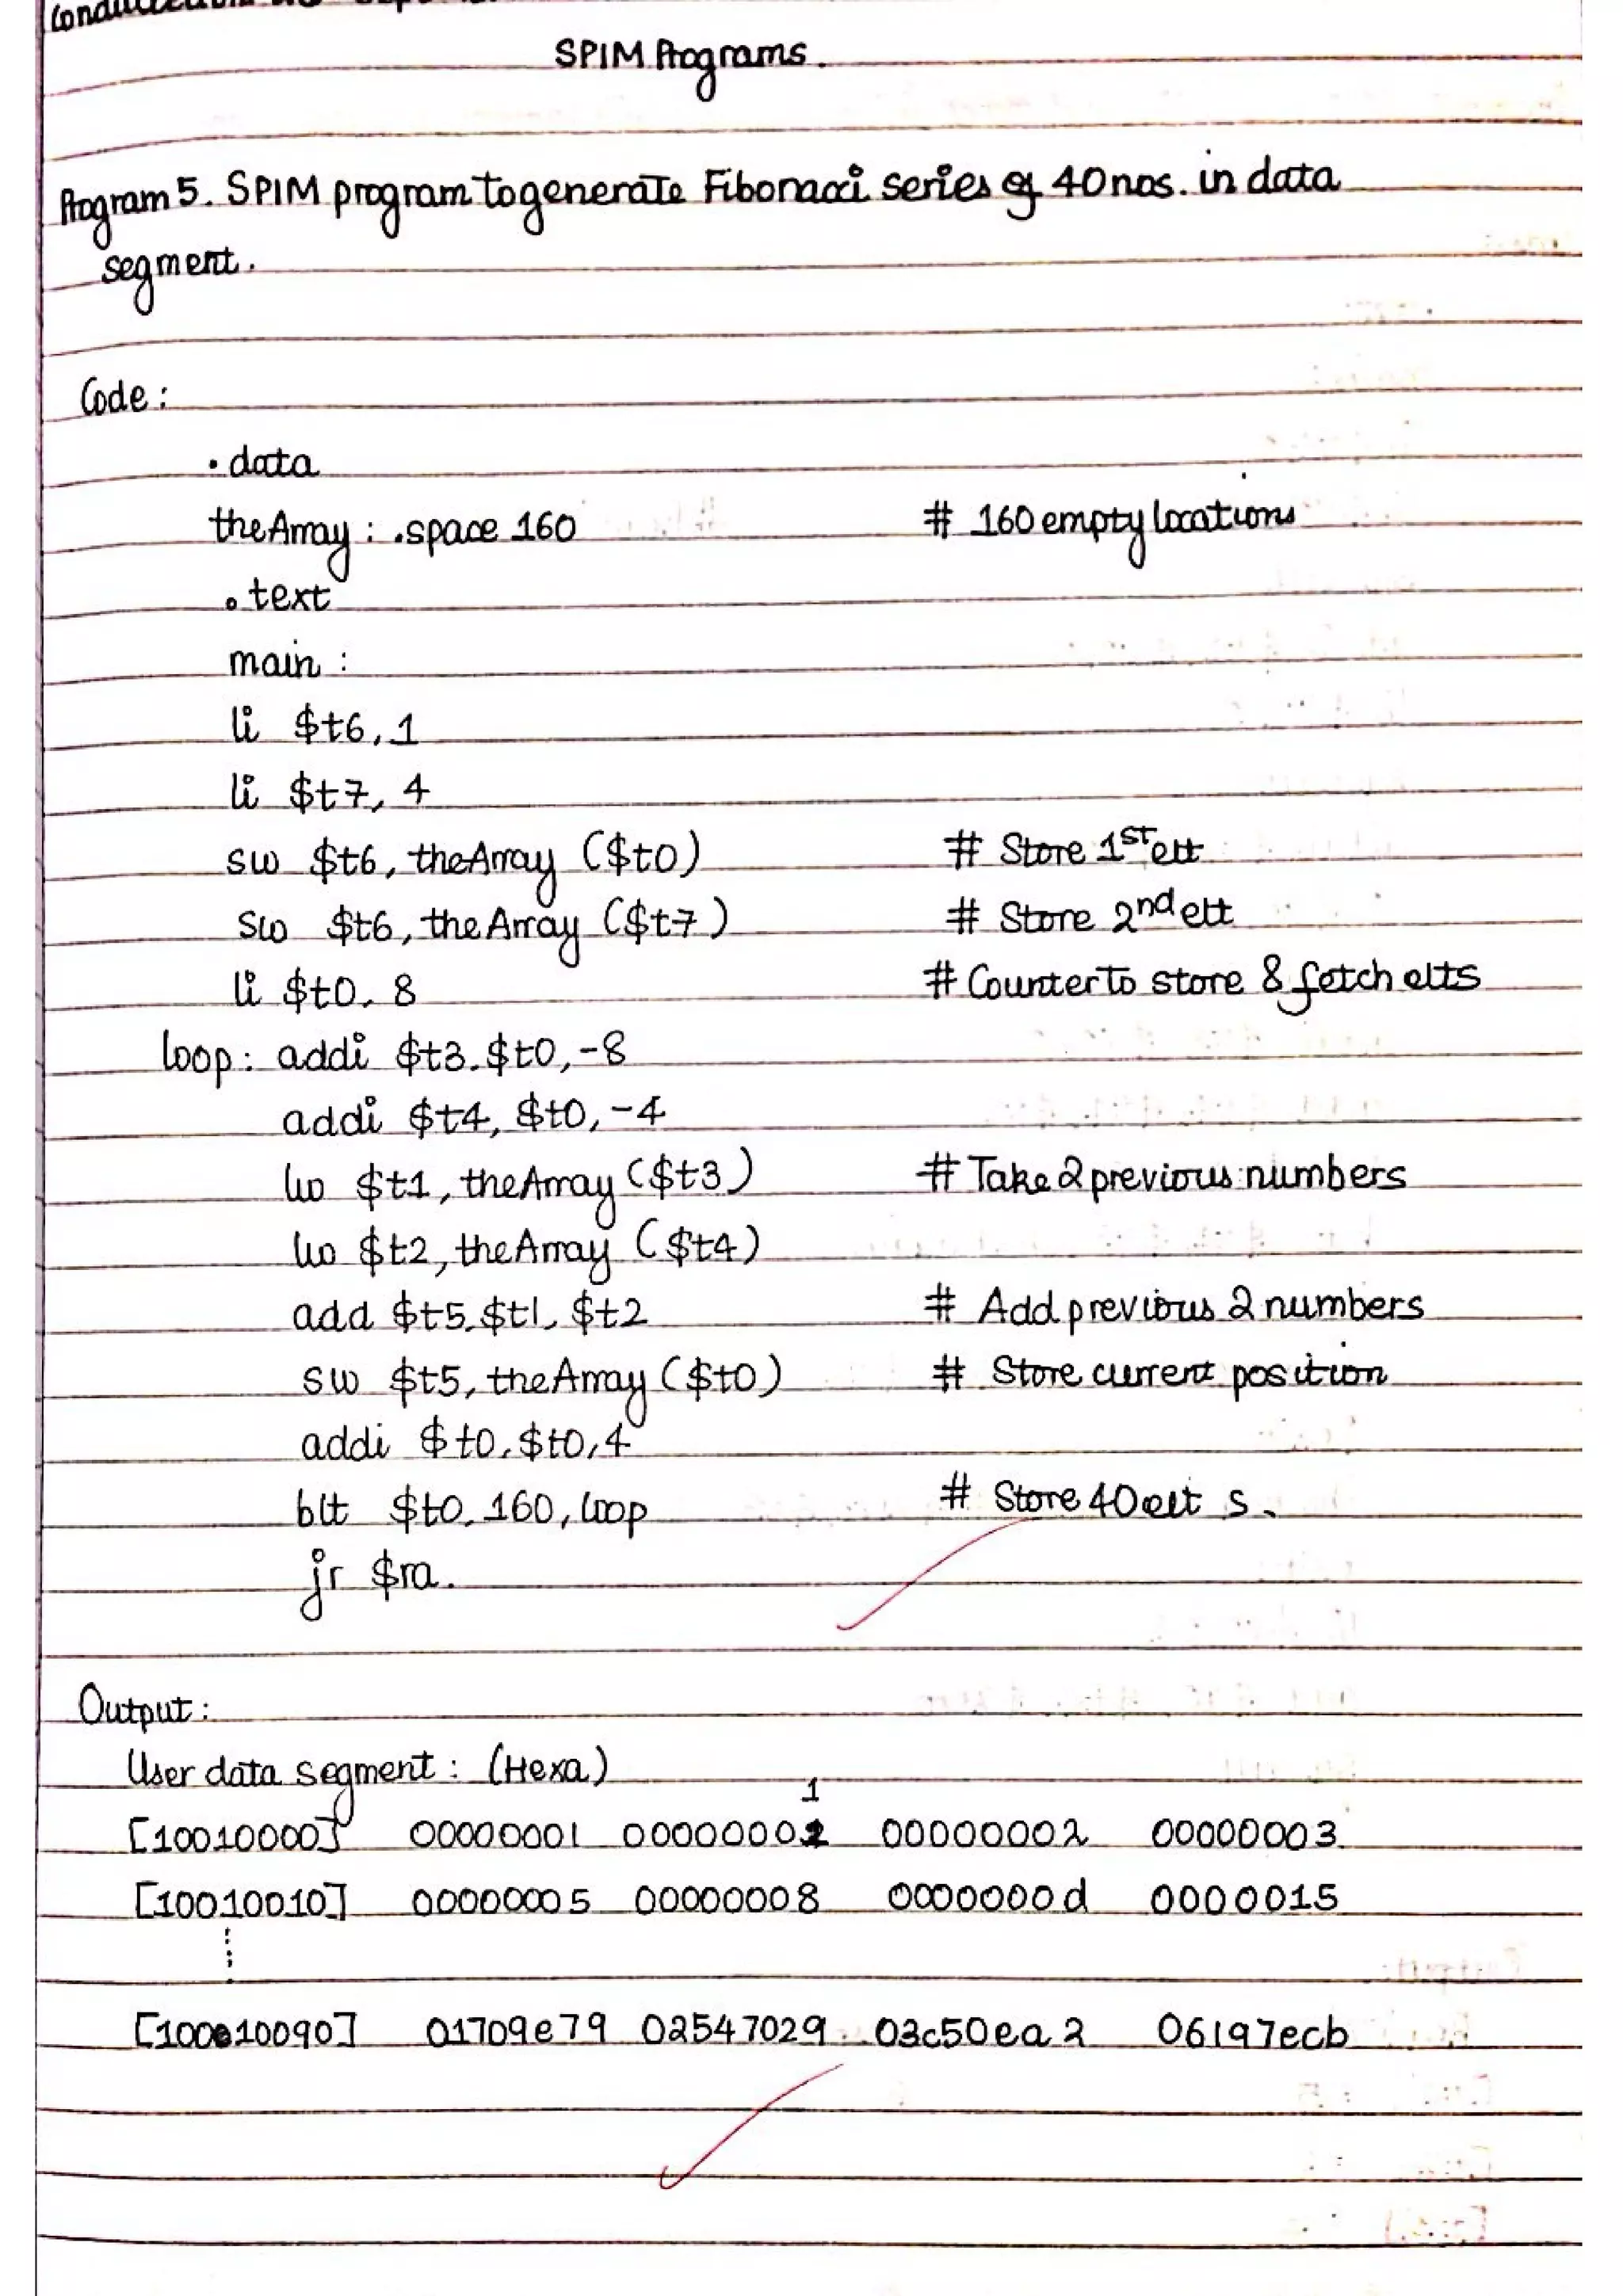 SPIM Programs.
Program 5. SPIM program to generate Fibonacci series of 40 nos. in data
segment.
Code:
.data
theArray: .space 160 # 160 empty locations
.text
main:
li $t6, 1
li $t7, 4
sw $t6, theArray ($t0) # Store 1st elt
sw $t6, theArray ($t7) # Store 2nd elt
li $t0, 8 # Counter to store & fetch elts
loop: addi $t3.$t0,-8
addi $t4, $t0, -4
lw $t1, theArray ($t3) # Take 2 previous numbers
lw $t2, theArray ($t4)
add $t5.$t1, $t2 # Add previous 2 numbers
sw $t5, theArray ($t0) # Store current position
addi $t0.$t0,4
blt $t0, 160, loop # Store 40 elt s.
jr $ra.
Output:
User data segment: (Hexa)
[10010000] 00000001 00000001 00000002 00000003.
[10010010] 00000005 00000008 0000000d 0000015
[10010090] 01709e79 02547029 03c50ea2 06197ecb